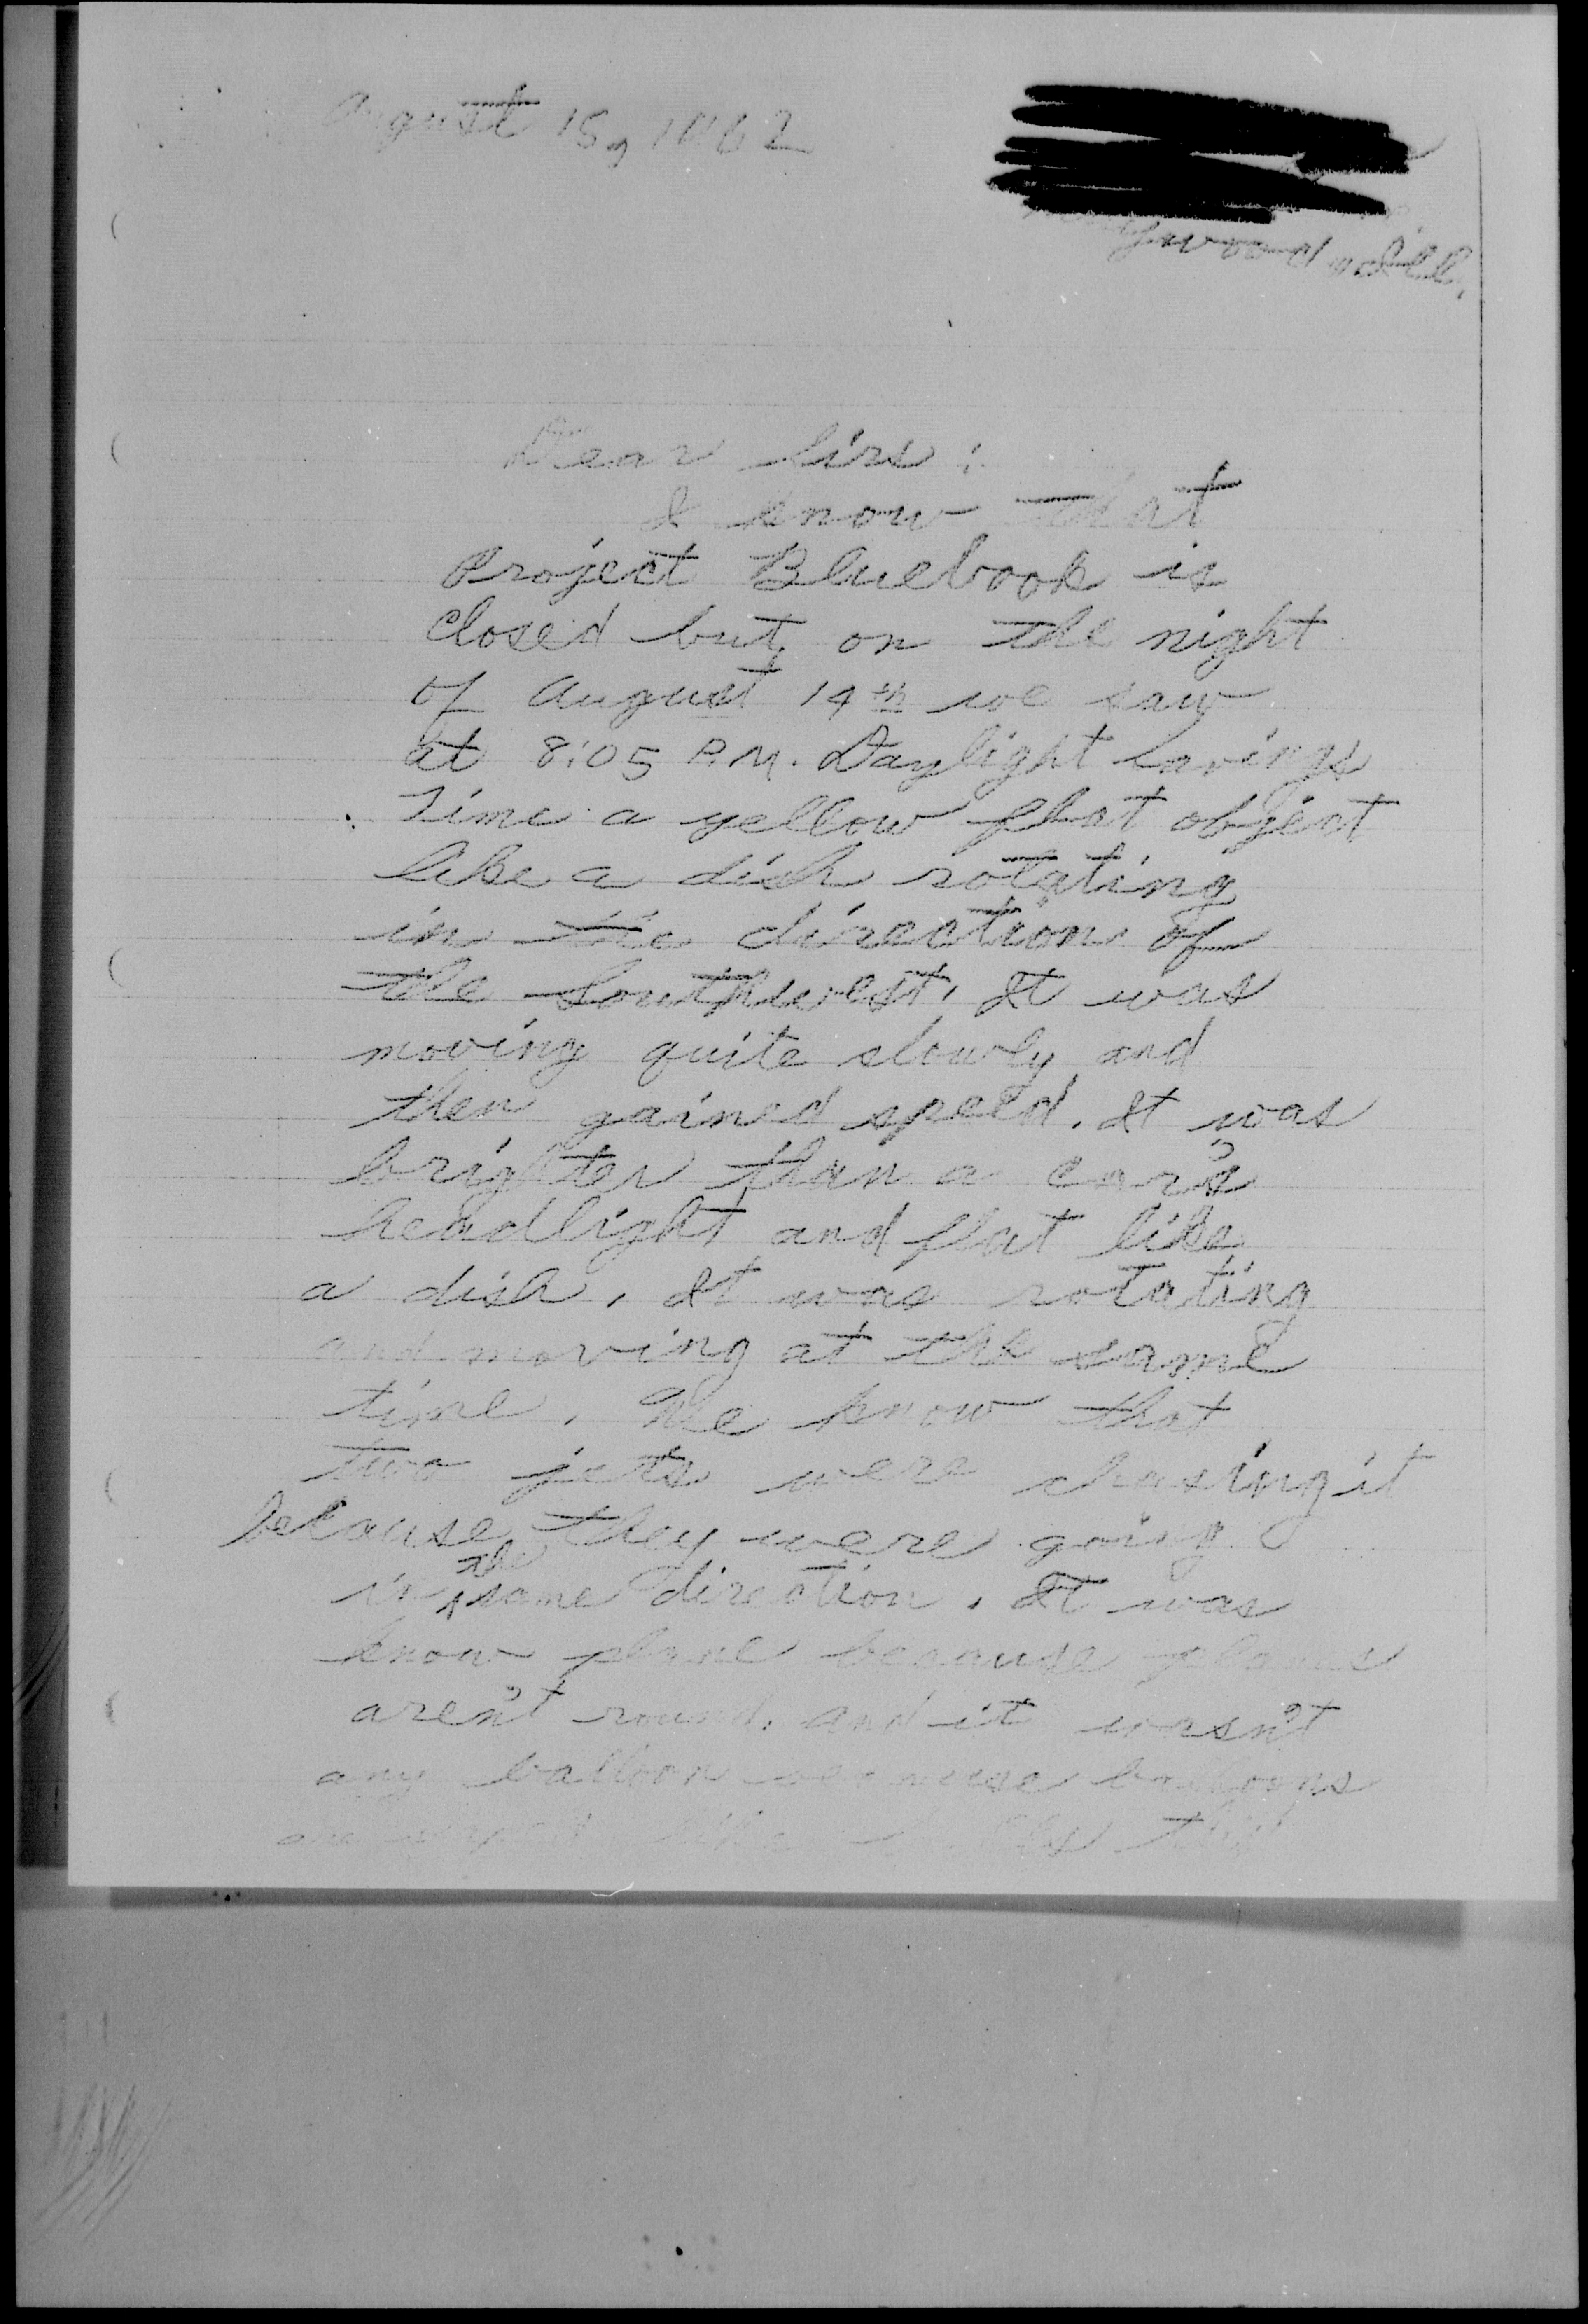 August 15, 1962
Dear Sirs:
I know that
Project Bluebook is
closed but on the night
of August 14th we saw
at 8:05 P.M. Daylight Savings
Time a yellow flat object
like a dish rotating
in the direction of
the Southwest. It was
moving quite slowly and
then gained speed. It was
brighter than a car's
headlight and flat like
a dish. It was rotating
and moving at the same
time. We know that
two jets were chasing it
because they were going
in the same direction. It was
know plane because planes
aren't round. And it wasn't
any balloon because balloons
are like